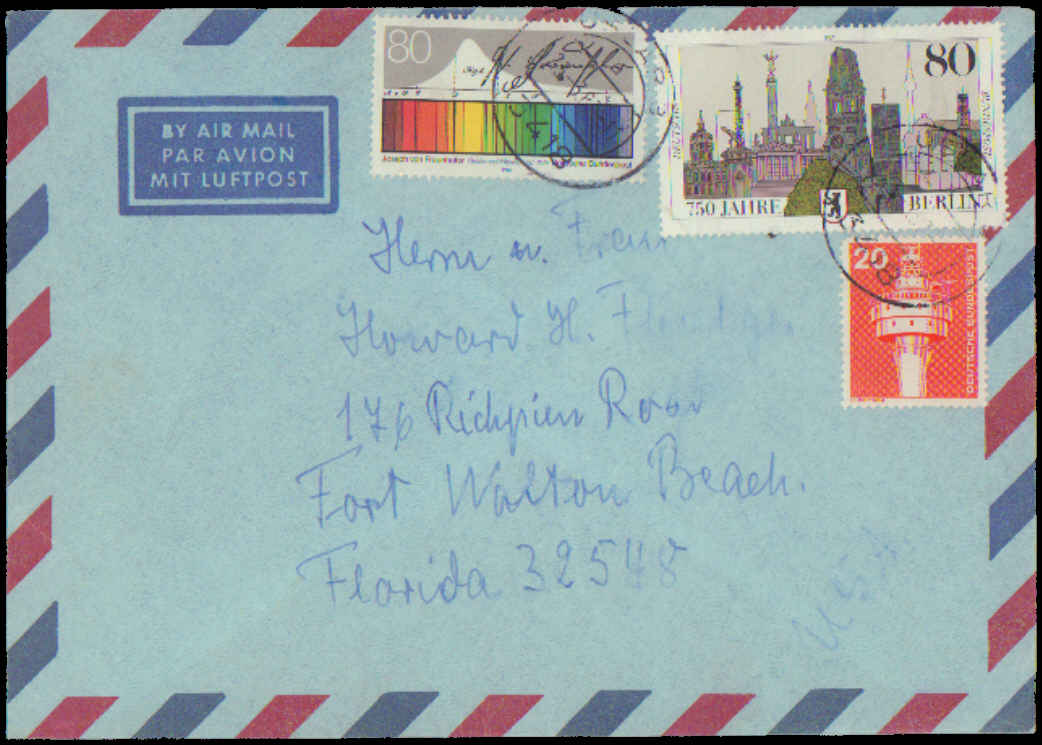 80
Joseph von Fraunhofer
80
750 JAHRE BERLIN
BY AIR MAIL
PAR AVION
MIT LUFTPOST
20
DEUTSCHE BUNDESPOST
Herrn u. Frau
Howard H.
176 Richpien Road
Fort Walton Beach.
Florida 32548
USA